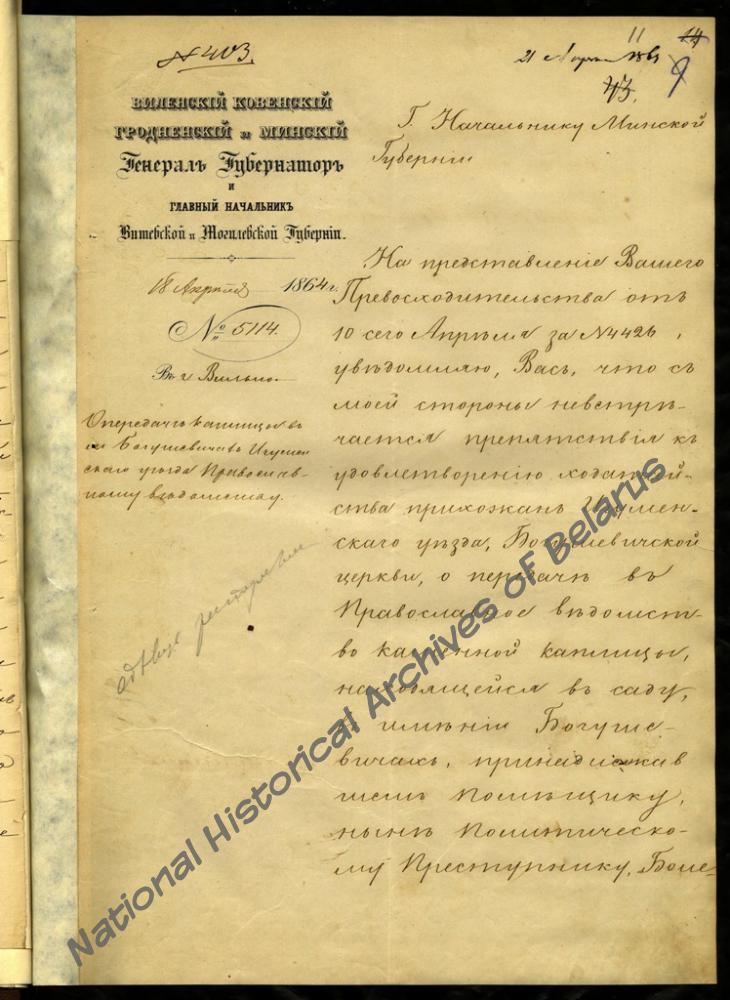 № 403.
11
14
21 Апреля 1864
9
43.
ВИЛЕНСКІЙ КОВЕНСКІЙ
ГРОДНЕНСКІЙ и МИНСКІЙ
Генералъ Губернаторъ
и
ГЛАВНЫЙ НАЧАЛЬНИКЪ
Витебской и Могилевской Губерніи.
18 Апрѣля 1864 г.
№ 5114.
Въ г. Вильно.
О передачѣ каплицы въ
им. Богушевичахъ Игумен-
скаго уѣзда Православ-
ному вѣдомству.
Г. Начальнику Минской
Губерніи
На представленіе Вашего
Превосходительства отъ
10 сего Апрѣля за № 4426,
увѣдомляю, Васъ, что съ
моей стороны невстрѣ-
чается препятствія къ
удовлетворенію ходатай-
ства прихожанъ Игумен-
скаго уѣзда, Богушевичской
церкви, о передачѣ въ
Православное вѣдомст-
во каменной каплицы,
находящейся въ саду,
въ имѣніи Богуше-
вичахъ, принадлежав
шемъ помѣщику,
нынѣ политическо-
му Преступнику, Боле-
National Historical Archives of Belarus